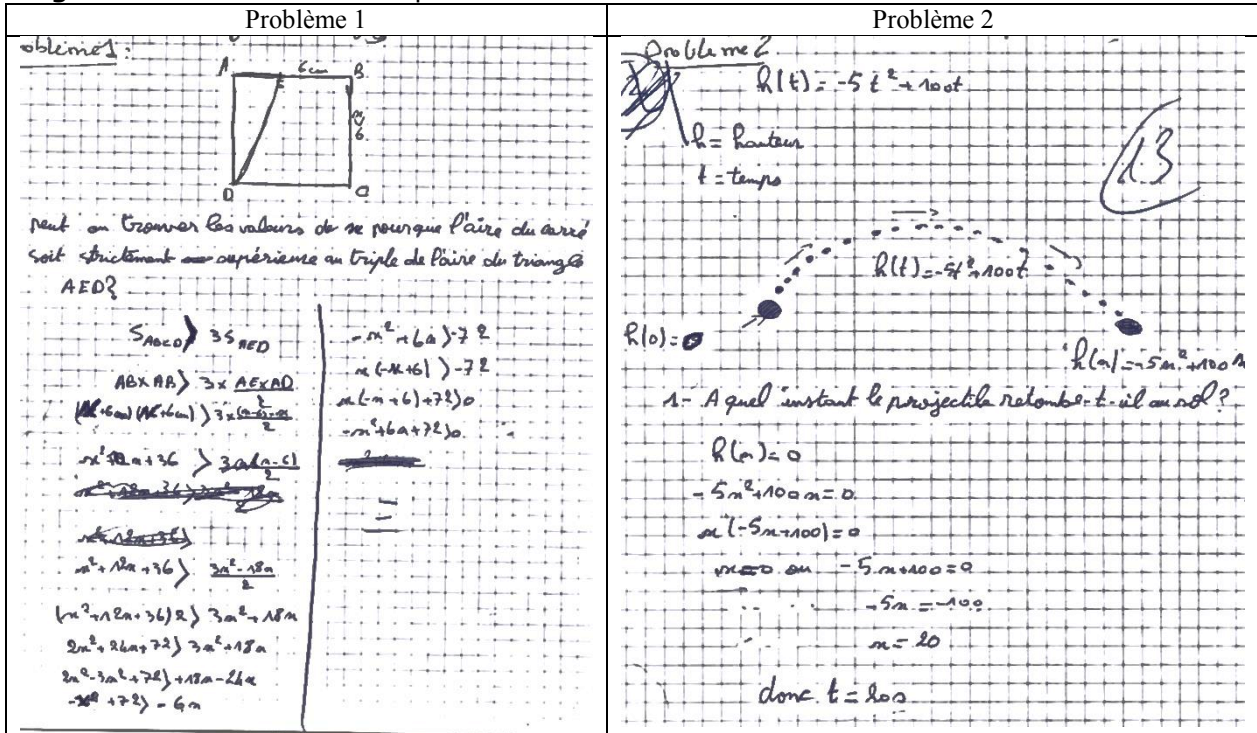 Problème 1
Problème 2
oblème 1 :
A
6 cm
B
E
D
C
peut on trouver les valeurs de x pour que l'aire du carré
soit strictement supérieure au triple de l'aire du triangle
AED?
S_ABCD > 3S_AED
ABxAB > 3x AExAD / 2
x² + 12x + 36 > 3x(x-6) / 2
x² + 12x + 36 > 3x² - 18x / 2
(x² + 12x + 36)2 > 3x² + 18x
2x² + 24x + 72 > 3x² + 18x
2x² - 3x² + 72 > +18x - 24x
-x² + 72 > - 6x
-x² + 6x > -72
x(-x+6) > -72
x(-x+6) + 72 > 0
-x² + 6x + 72 > 0
Problème 2
h(t) = -5t² + 100t
h = hauteur
t = temps
13
h(t) = -5t² + 100t
h(0) = 0
h(x) = -5x² + 100x
1- A quel instant le projectile retombe-t-il au sol ?
h(x) = 0
-5x² + 100x = 0
x(-5x+100) = 0
x = 0 ou -5x + 100 = 0
-5x = -100
x = 20
donc t = 20s